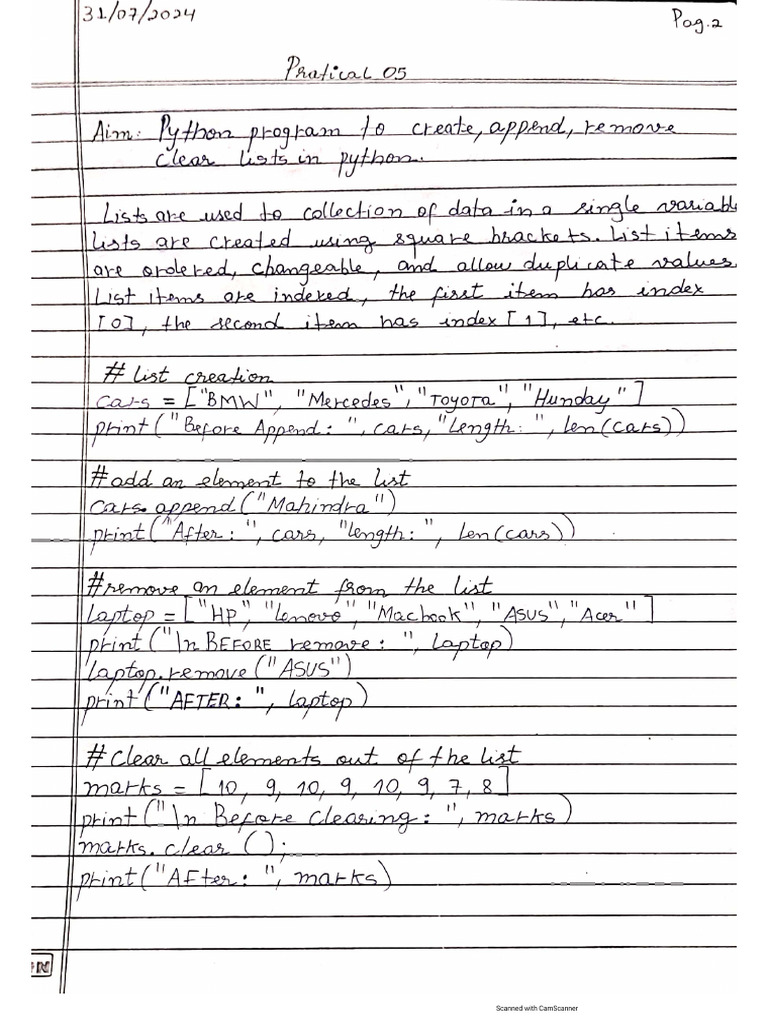 31/07/2024
Pag.2
Pratical 05
Aim: Python program to create, append, remove
clear lists in python.
Lists are used to collection of data in a single variabl
lists are created using square brackets. List items
are ordered, changeable, and allow duplicate values
List items are indexed, the first item has index
[0], the second item has index [1], etc.
# list creation
cars = ["BMW", "Mercedes", "Toyota", "Hunday"]
print("Before Append: ", cars, "Length: ", len(cars))
#add an element to the list
cars.append("Mahindra")
print("After: ", cars, "length: ", len(cars))
#remove an element from the list
laptop = ["HP", "Lenovo", "Macbook", "ASUS", "Acer"]
print("\n BEFORE remove: ", laptop)
laptop.remove("ASUS")
print("AFTER: ", laptop)
# Clear all elements out of the list
marks = [10, 9, 10, 9, 10, 9, 7, 8]
print("\n Before Clearing: ", marks)
marks.clear();
print("After: ", marks)
Scanned with CamScanner